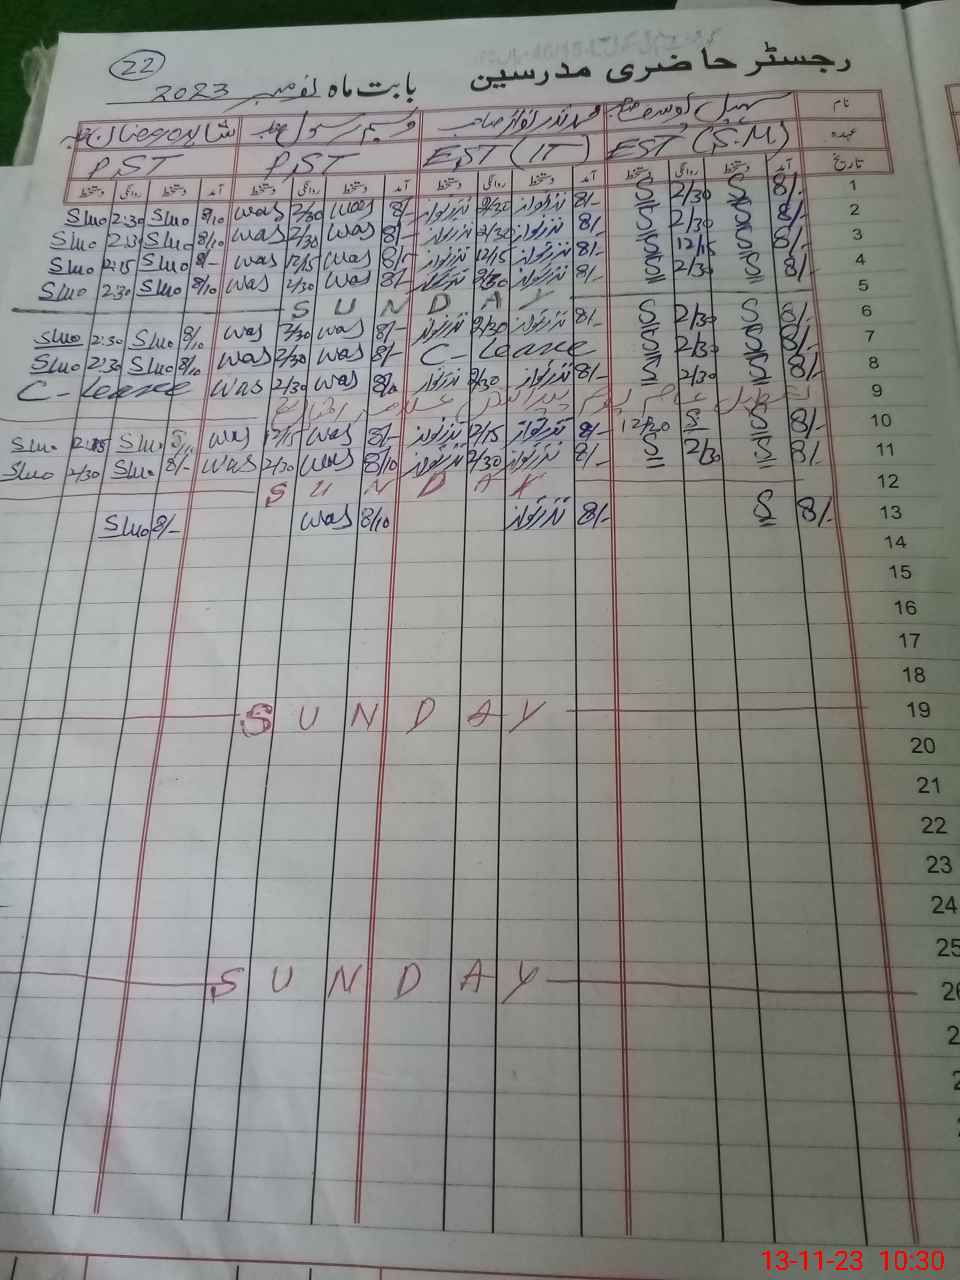 22
رجسٹر حاضری مدرسین
بابت ماہ نومبر 2023
نام
عہدہ EST (S.M) EST (IT) P.ST P.ST
تاریخ آمد دستخط روانگی دستخط آمد دستخط روانگی دستخط آمد دستخط روانگی دستخط آمد دستخط روانگی دستخط
1 8/- S 2/30 S 8/- نذر نواز 2/30 نذر نواز 8/- was 2/30 was 8/10 Slmo 2:30 Slmo
2 8/- S 2/30 S 8/- نذر نواز 2/30 نذر نواز 8/- was 2/30 was 8/10 Slmo Slmo
3 8/- S 12/15 S 8/- نذر نواز 12/15 نذر نواز was 12/15 was 8/- Slmo Slmo
4 8/- S 2/30 S 8/- نذر نواز نذر نواز 8/- was 2/30 was 8/10 Slmo 2:30 Slmo
5 SUNDAY
6 8/- S 2/30 S 8/- نذر نواز 2/30 نذر نواز 8/- was 2/30 was 8/10 Slmo 2:30 Slmo
7 8/- S 2/30 S C-Leave 8/- was 2/30 was 8/10 Slmo 2:30 Slmo
8 8/- S 2/30 S 8/- نذر نواز 2/30 نذر نواز 8/10 was 2/30 was C-Leave
9 تعطیل
10 8/- S S 12/20 8/- نذر نواز 12/15 نذر نواز 8/- was 12/15 was Slmo Slmo
11 8/- S 2/30 S 8/- نذر نواز 2/30 نذر نواز 8/10 was 2/30 was 8/- Slmo 2/30 Slmo
12 SUNDAY
13 8/- S 8/- نذر نواز 8/10 was 8/- Slmo
14
15
16
17
18
19 SUNDAY
20
21
22
23
24
25
26 SUNDAY
13-11-23 10:30